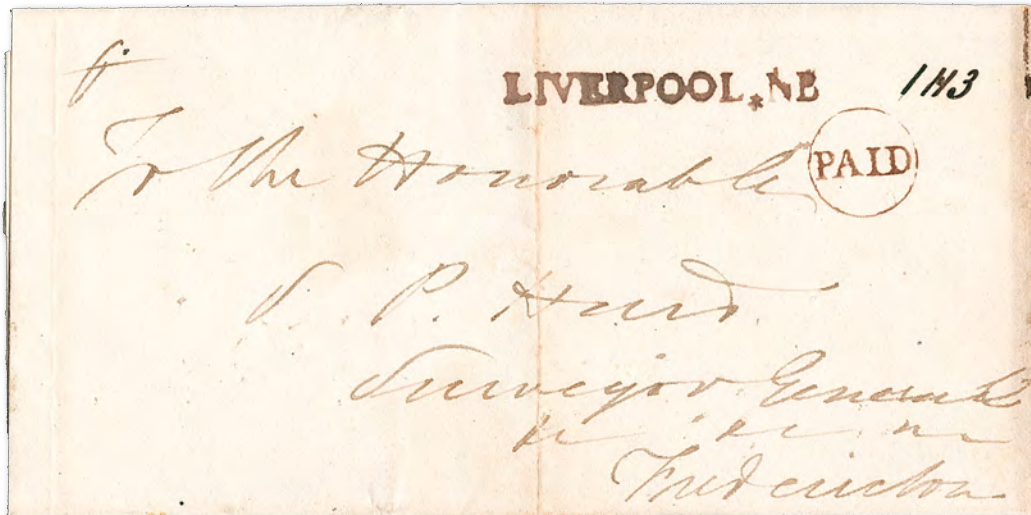 LIVERPOOL.*NB 1N3
PAID
To the Honorable
S. P. Hurd
Surveyor General
&c &c &c
Fredericton